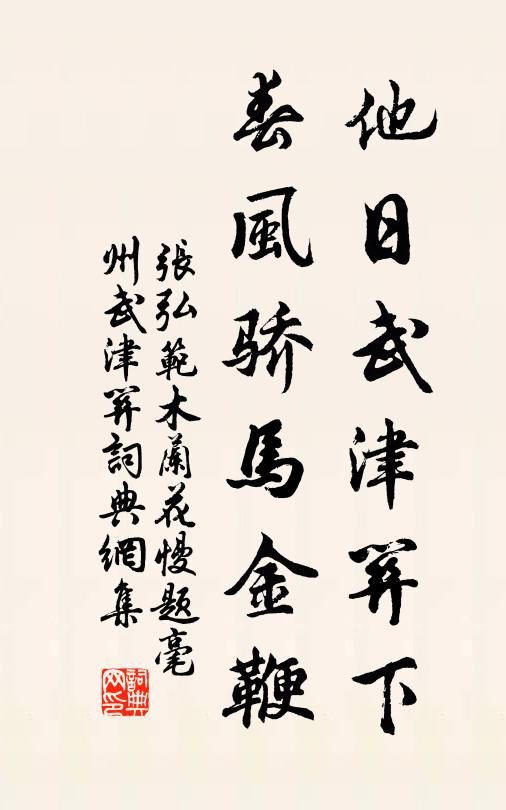 他日武津関下
春風骄馬金鞭
張弘範木蘭花慢題亳
州武津関詞典網集
詞典网印